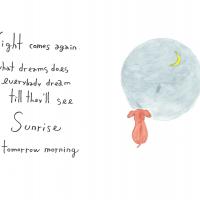 Night comes again
what dreams does
everybody dream
till they'll see
Sunrise
tomorrow morning